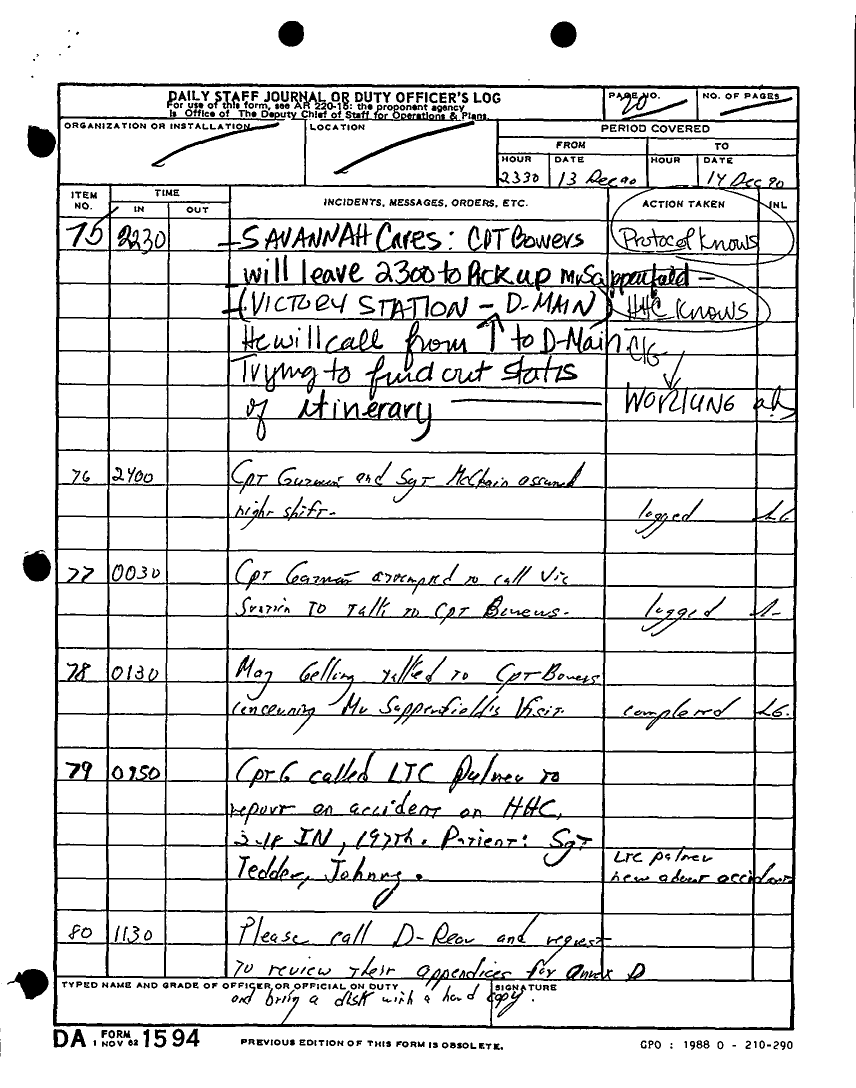 DAILY STAFF JOURNAL OR DUTY OFFICER'S LOG
For use of this form, see AR 220-15: the proponent agency
is Office of The Deputy Chief of Staff for Operations & Plans.
PAGE NO.
20
NO. OF PAGES
ORGANIZATION OR INSTALLATION
LOCATION
PERIOD COVERED
FROM
TO
HOUR
DATE
HOUR
DATE
2330
13 Dec 90
14 Dec 90
ITEM NO.
TIME
IN
OUT
INCIDENTS, MESSAGES, ORDERS, ETC.
ACTION TAKEN
INL
75 2230 - SAVANNAH Cares: CPT Bowers Protocol Knows
will leave 2300 to Pick up Mr Sappenfield -
(VICTORY STATION - D-MAIN) HHC Knows
He will call from ↑ to D-Main
Trying to find out status
of itinerary WORKING
76 2400 Cpt Guzman and Sgt McChain assumed
night shift. logged LG
77 0030 Cpt Guzman attempted to call Vic
Station To Talk to Cpt Bowers. logged
78 0130 Maj Gelling talked to Cpt Bowers
concerning Mr Sappenfield's Visit. completed LG.
79 0950 Cpt G called LTC Palmer to
report an accident on HHC,
3-18 IN, 197th. Patient: Sgt
Tedder, Johnny. LTC Palmer
new about accident
80 1130 Please call D-Rear and request
to review their appendices for annex D
TYPED NAME AND GRADE OF OFFICER OR OFFICIAL ON DUTY
SIGNATURE
and bring a disk with a hard copy.
DA FORM 1 NOV 62 1594
PREVIOUS EDITION OF THIS FORM IS OBSOLETE.
GPO : 1988 O - 210-290